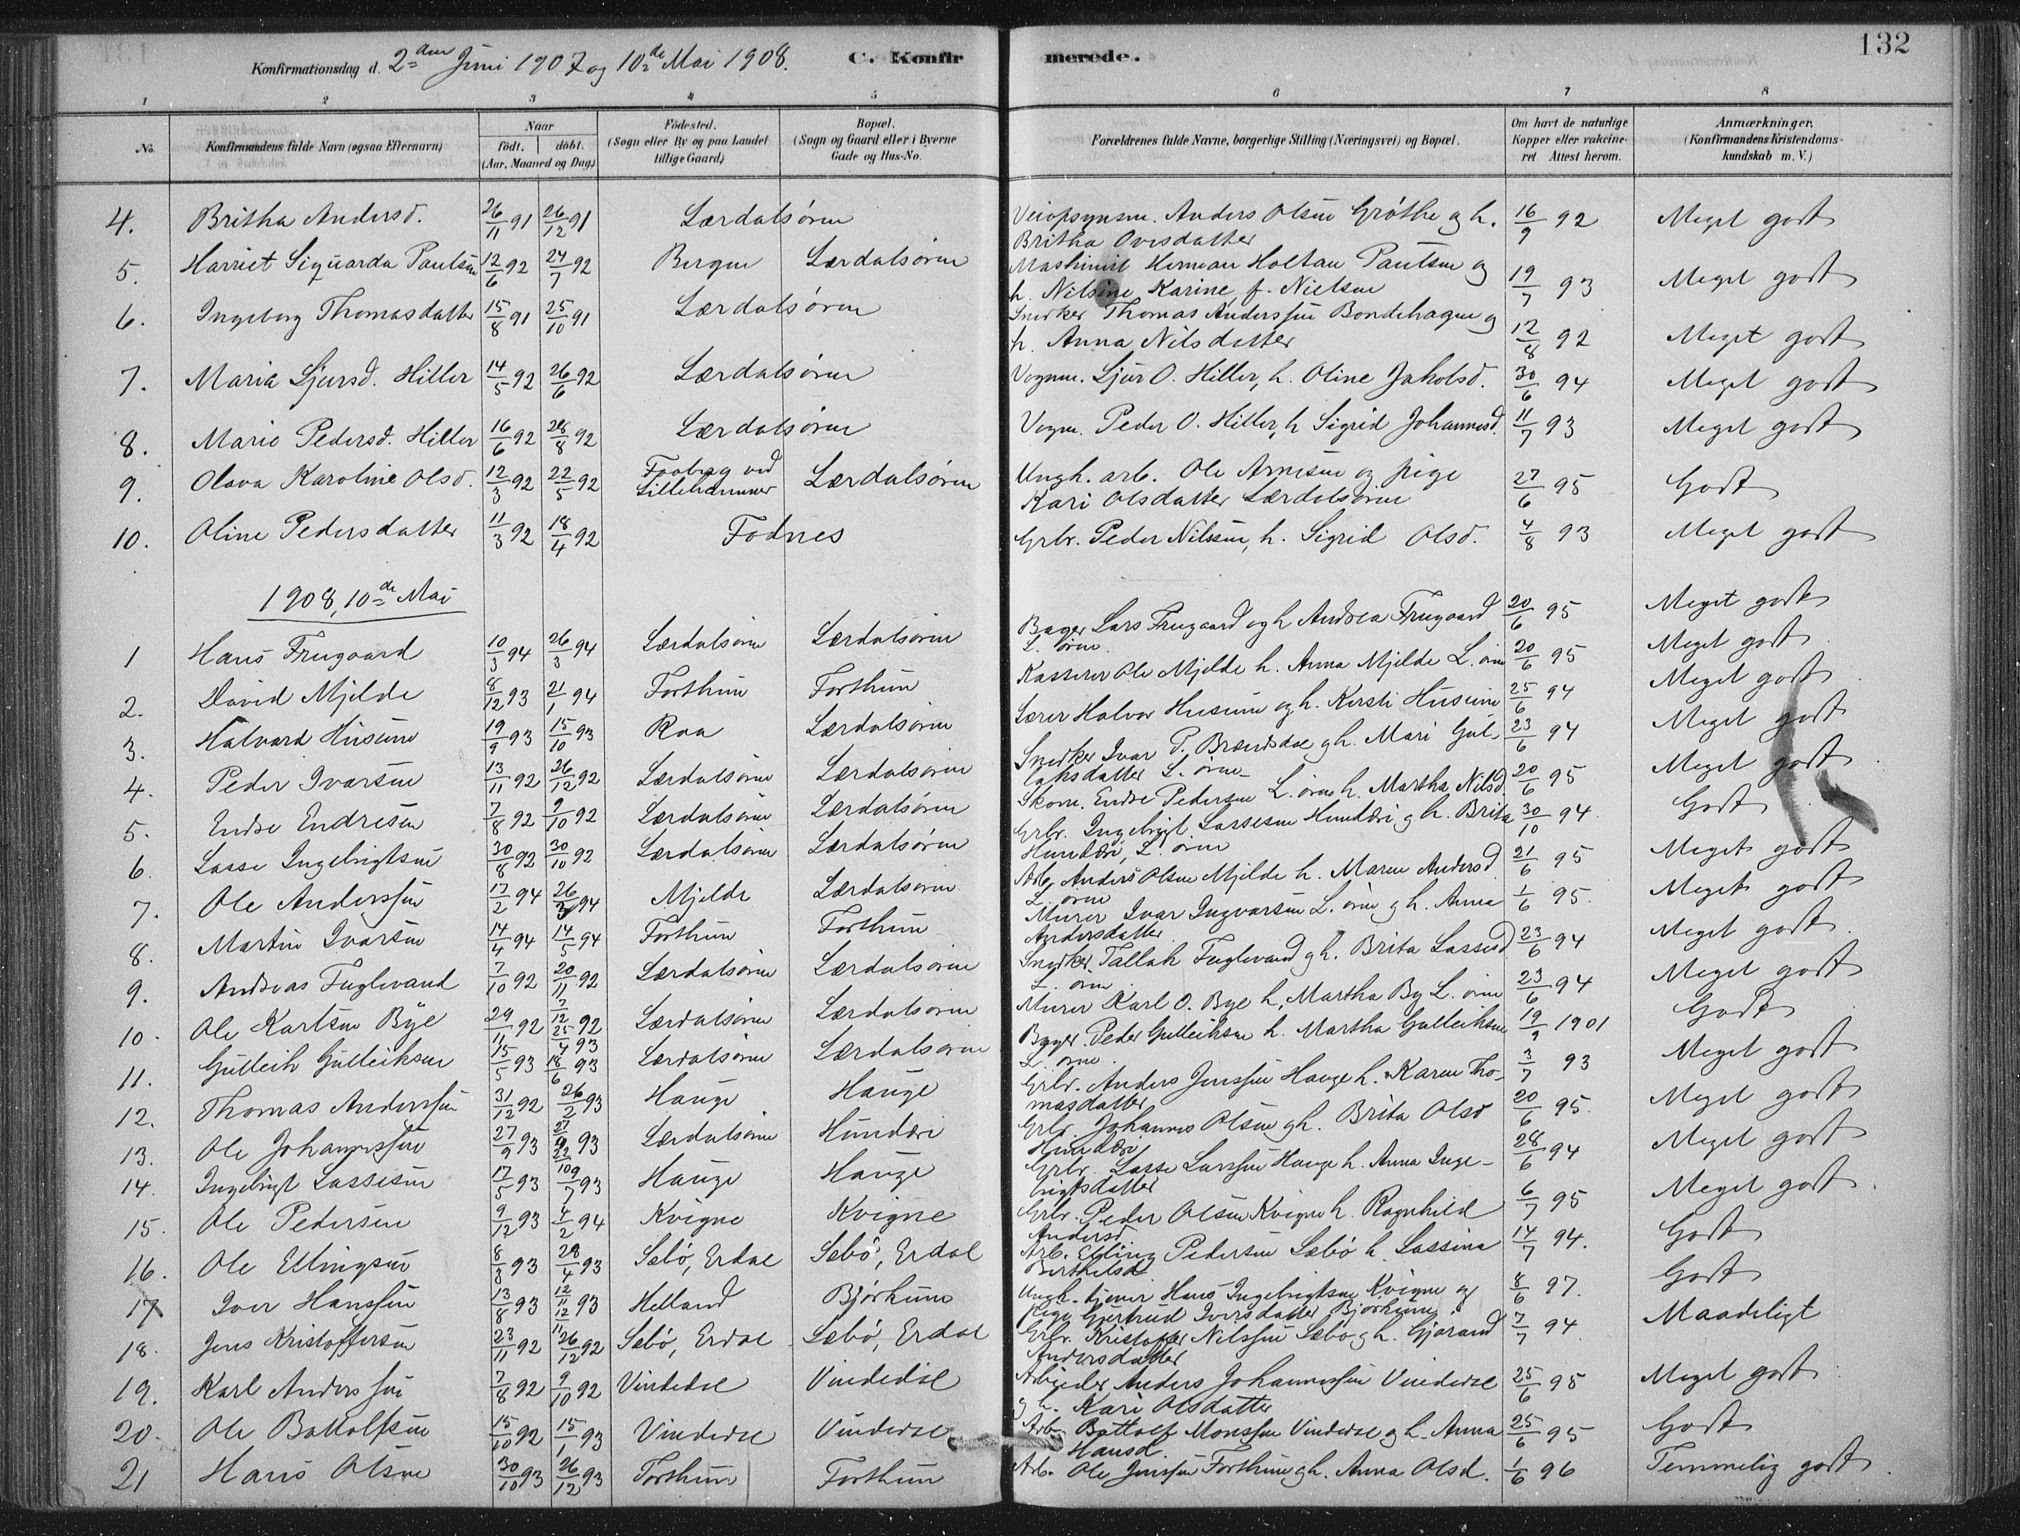 132
Konfirmationsdag d. 2den Juni 1907 og 10de Mai 1908. C. Konfirmerede.
1 2 3 4 5 6 7 8
No. Konfirmandens fulde Navn (ogsaa Efternavn) Naar født. døbt. (Aar, Maaned og Dag.) Fødested. (Sogn eller By og paa Landet tillige Gaard.) Bopæl. (Sogn og Gaard eller i Byerne Gade og Hus-No. Forældrenes fulde Navne, borgerlige Stilling (Næringsvei) og Bopæl. Om havt de naturlige Kopper eller vakcineret. Attest herom. Anmærkninger. (Konfirmandens Kristendomskundskab m. V.)
4. Britha Andersd. 26/11 91 26/12 91 Lærdalsøren Veiopsynsm. Anders Olsen Grøthe og h. Britha Ovesdatter 16/9 92 Meget godt
5. Harriet Siguarda Paulsen 12/6 92 24/7 92 Bergen Lærdalsøren Maskinist Herman Holtan Paulsen og h. Nilsine Karine f. Nielsen 19/7 93 Meget godt
6. Ingeborg Thomasdatter 15/8 91 25/10 91 Lærdalsøren Snedker Thomas Anderssen Bondehagen og h. Anna Nilsdatter 12/8 92 Meget godt
7. Maria Sjursd. Hiller 14/5 92 26/6 92 Lærdalsøren Vognm. Sjur O. Hiller, h. Oline Jakobsd. 30/6 94 Meget godt
8. Marie Pedersd. Hiller 16/6 92 28/8 92 Lærdalsøren Vognm. Peder O. Hiller, h Sigrid Johannesd. 11/7 93 Meget godt
9. Olava Karoline Olsd. 12/3 92 22/5 92 Faaberg ved Lillehammer Lærdalsøren Ungk. arb. Ole Arnesen og pige Kari Olsdatter Lærdalsøren 27/6 95 Godt
10. Oline Pedersdatter 11/3 92 18/4 92 Fodnes Grbr. Peder Nilssen, h. Sigrid Olsd. 4/8 93 Meget godt
1908, 10de Mai
1 Hans Frugaard 10/3 94 26/3 94 Lærdalsøren Lærdalsøren Bager Lars Frugaard og h Andrea Frugaard L. øren. 20/6 95 Meget godt
2. David Mjelde 8/12 93 21/1 94 Forthun Forthun Kasserer Ole Mjelde h. Anna Mjelde L. øren 20/6 95 Meget godt
3. Halvard Husum 19/9 93 15/10 93 Raa Lærdalsøren Lærer Halvor Husum og h. Kersti Husum 25/6 94 Meget godt
4. Peder Ivarsen 13/11 92 26/12 92 Lærdalsøren Lærdalsøren Snedker Ivar P. Brændsdøe og h. Mari Gullaksdatter L. øren 23/6 94 Meget godt
5. Endre Endresen 7/8 92 9/10 92 Lærdalsøren Lærdalsøren Skom. Endre Pedersen L. øren h. Martha Nilsd. 20/6 95 Meget godt
6. Lasse Ingebrigtsen 30/8 92 30/10 92 Lærdalsøren Lærdalsøren Grbr. Ingebrigt Lassesen Hunderi og h. Brita Hunderi, L. øren 30/10 94. Godt
7. Ole Anderssen 17/2 94 26/3 94 Mjelde Lærdalsøren Arb. Anders Olsen Mjelde h. Maren Andersd L. øren 21/6 95 Meget godt
8. Martin Ivarsen 14/4 94 14/5 94 Forthun Forthun Murer Ivar Ingvarsen L. øren og h. Anna Andersdatter 1/6 95. Meget godt
9. Andreas Fuglevand 7/10 92 20/11 92 Lærdalsøren Lærdalsøren Snedker Tallak Fuglevand og h. Brita Lassesd L. øren 23/6 94 Meget godt
10. Ole Karlsen Bye 29/11 92 25/12 92 Lærdalsøren Lærdalsøren Murer Karl O. Bye h. Martha By L. øren 23/6 94 Meget godt
11. Gulleik Gulleiksen 15/5 93 18/6 93 Lærdalsøren Lærdalsøren Bager Peder Gulleiksen h. Martha Gulleiksen L. øren. 19/9 1901 Godt
12. Thomas Anderssen 31/12 92 26/2 93 Hauge Hauge Grbr. Anders Jenssen Hauge h. Karen Thomasdatter 3/7 93 Meget godt
13. Ole Johannessen 27/9 93 93 Lærdalsøren Hunderi Grbr. Johannes Olsen og h. Brita Olsd Hunderi 20/6 95. Meget godt
14. Ingebrigt Lassesen 17/5 93 9/7 93 Hauge Hauge Grbr. Lasse Larssen Hauge h. Anna Ingebrigtsdatter 28/6 94 Meget godt
15. Ole Pedersen 9/12 93 4/2 94 Kvigne Kvigne Grbr. Peder Olsen Kvigne h. Ragnhild Andersd. 6/7 95 Meget godt
16. Ole Ellingsen 8/3 93 28/4 93 Sæbø, Erdal Sæbø, Erdal Arb. Elling Pedersen Sæbø h. Lassina Berthelsd 14/7 94. Godt
17 Iver Hanssen 13/8 93 93 Helland Bjørkum Ungk. tjener Hans Ingebrigtsen Kvigne og pige Gjertrud Iversdatter Bjørkum. 8/6 97. Godt
18. Jens Kristoffersen 23/11 92 26/12 92 Sæbø, Erdal Sæbø, Erdal Grbr. Kristoffer Nilssen Sæbø og h. Gjørand Andersdatter 7/7 94. Maadeligt
19. Karl Anderssen 7/8 92 9/10 92 Vindedal Vindedal Arbeider Anders Johannessen Vindedal og h. Kari Olsdatter 25/6 95 Meget godt
20. Ole Bottolfsen 15/10 92 15/1 93 Vindedal Vindedal Arb. Bottolf Monssen Vindedal og h. Anna Hansd. 25/6 95 Godt
21 Hans Olsen 30/10 93 26/12 93 Forthun Forthun Arb. Ole Jenssen Forthun og h. Anna Olsd. 1/6 96 Temmelig godt